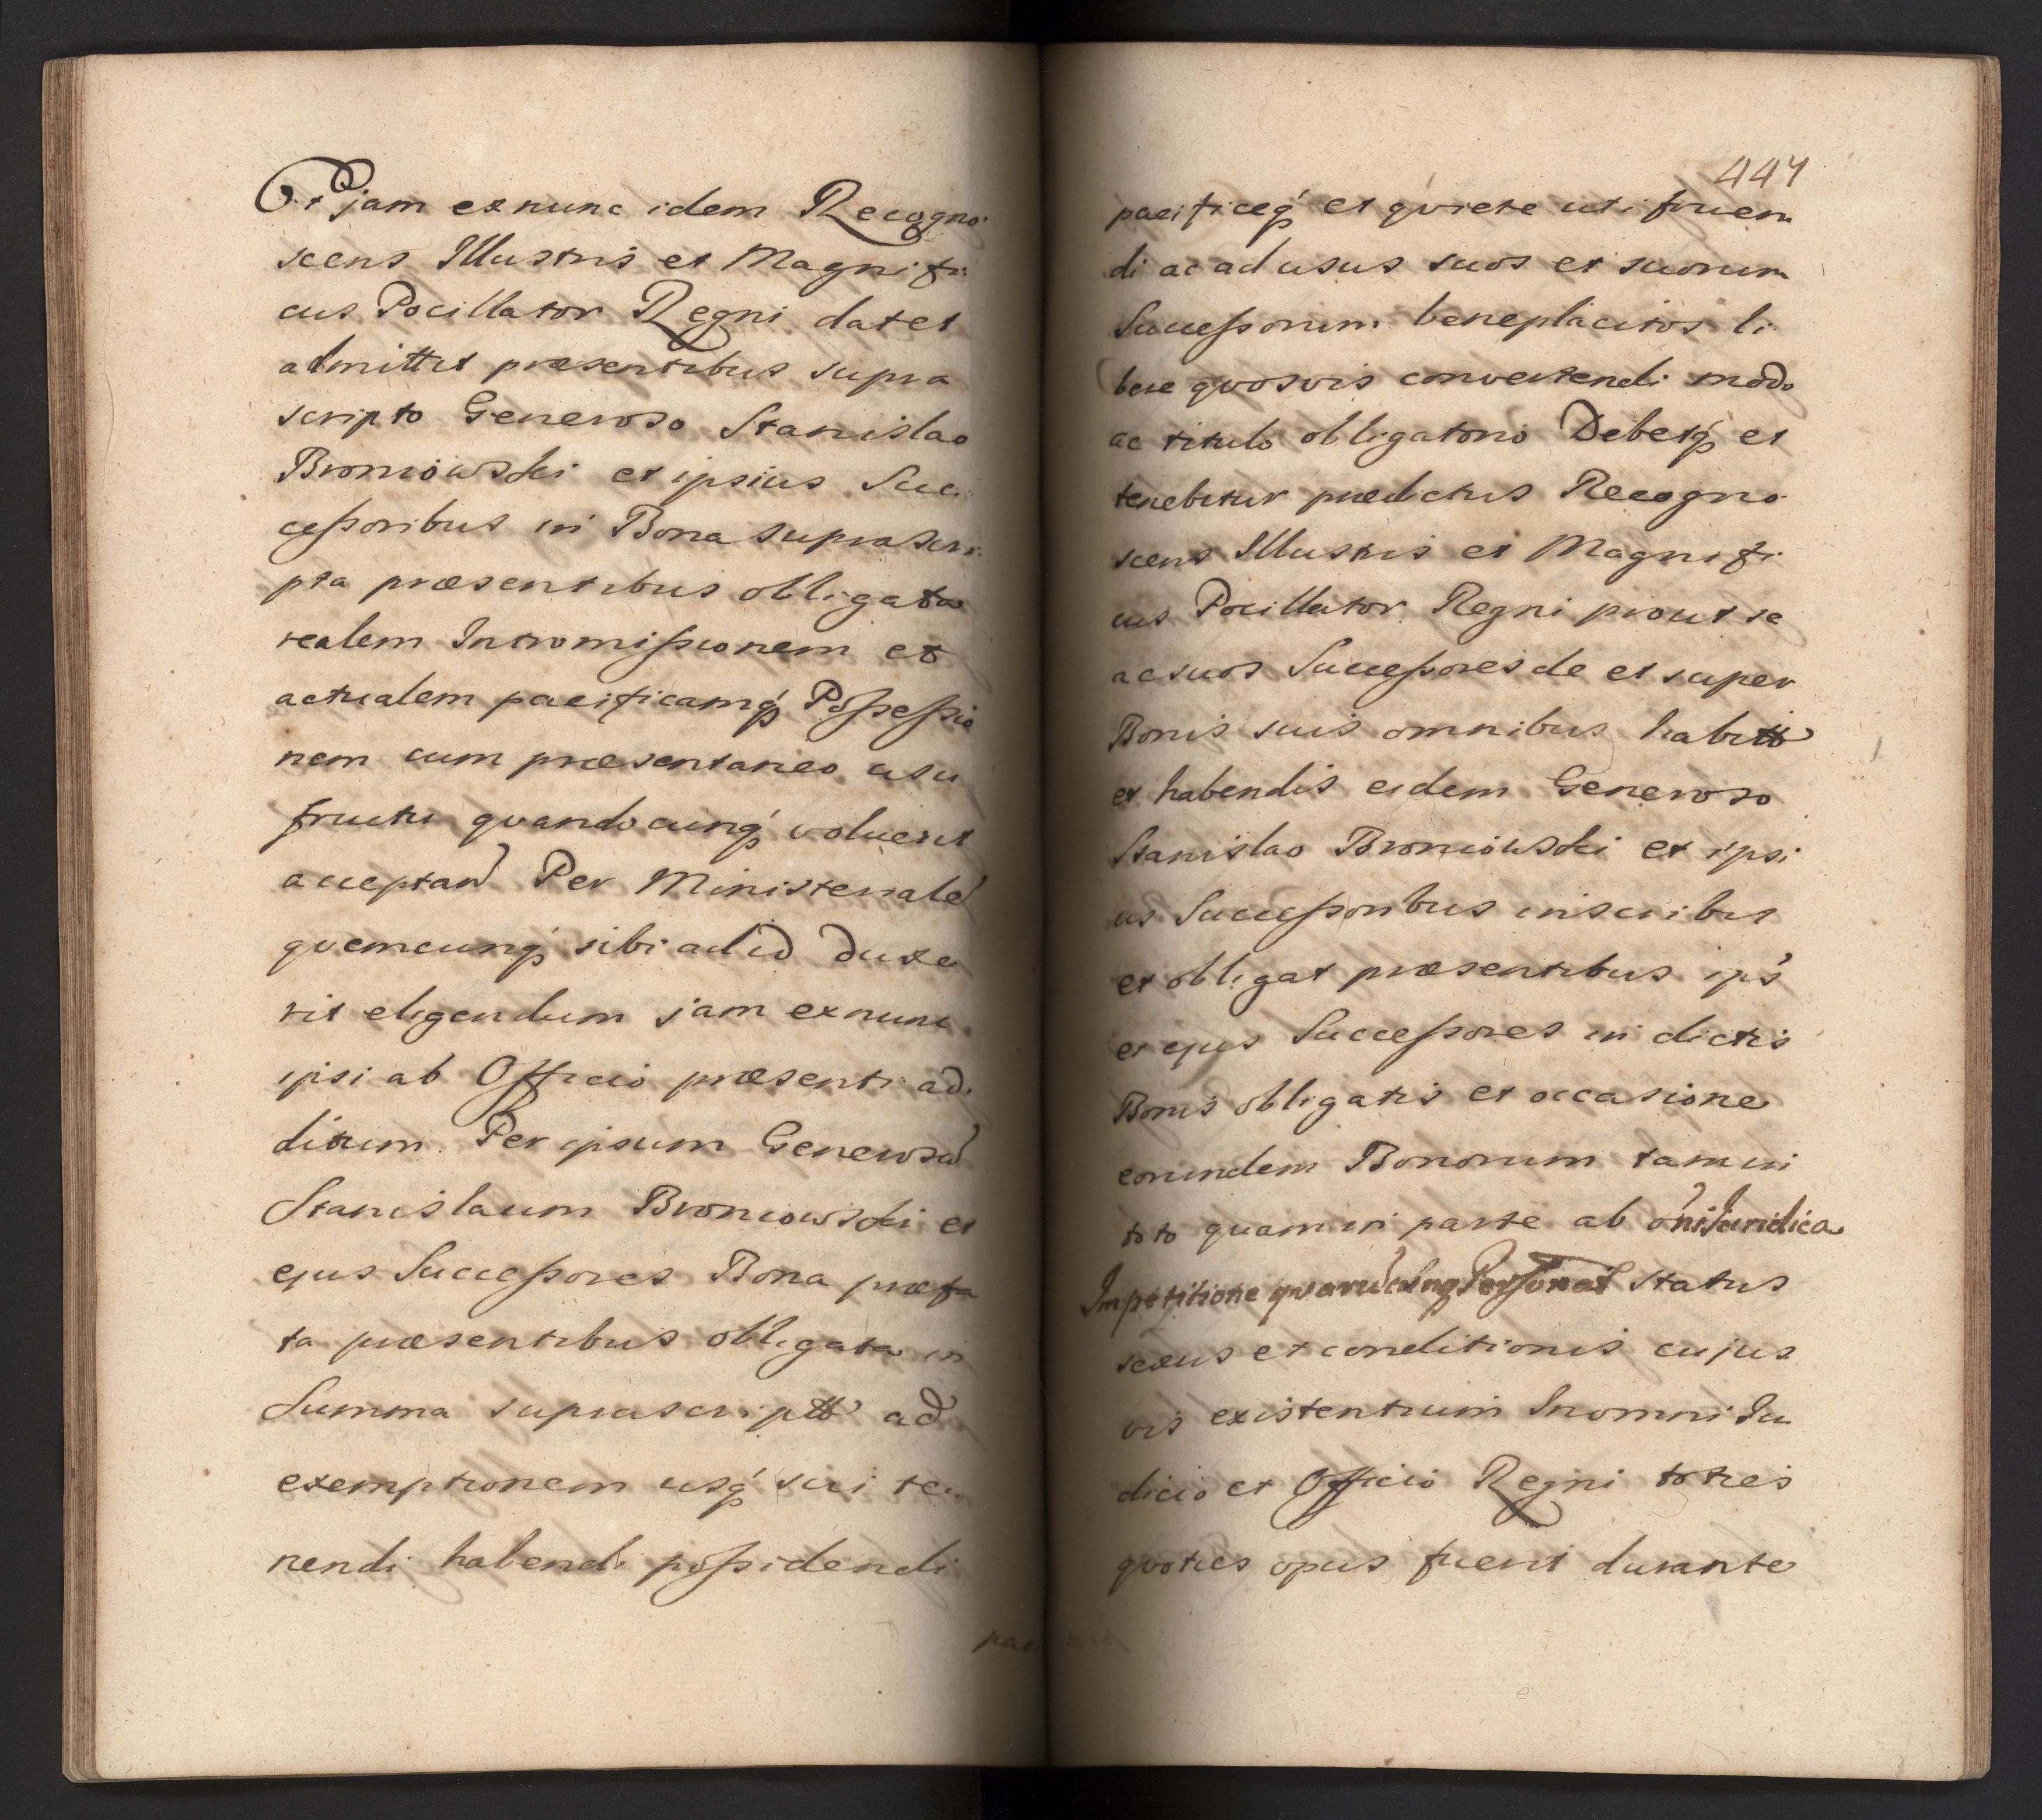 Et jam exnunc idem Recogno-
scens Illustris et Magnifi-
cus Pocillator Regni dat et
admittit præsentibus supra
scripto Generoso Stanislao
Broniowski et ipsius Suc-
ceßoribus in Bona suprascri-
pta præsentibus obligata
realem Intromißionem et
actualem pacificamq́ Poßeßio
nem cum præsentaneo usu
fructu qvandocunq́ voluerit
acceptand Per Ministeriale
qvemcunq́ sibi ad id duxe
rit eligendum jam exnunc
ipsi ab Officio præsenti ad-
ditum. Per ipsum Generosu
Stanislaum Broniowski et
ejus Succeßores Bona præfa
ta præsentibus obligata in
Summa suprascripta ad
exemptionem usq́ sui te-
nendi habendi poßidendi
paci
447
pacificeq́ et qviete uti fruen
di ac ad usus suos et suorum
Succeßorum beneplacitos li-
bere qvosvis convertendi modo
ac titulo obligatorio Debetq́ et
tenebitur prædictus Recogno-
scens Illustris et Magnifi-
cus Pocillator Regni prout se
ac suos Succeßores de et super
Bonis suis omnibus habitis
et habendis eidem Generoso
Stanislao Broniowski et ipsi
us Succeßoribus inscribit
et obligat præsentibus ips
et ejus Succeßores in dictis
Bonis obligatis et occasione
eorundem Bonorum tam in
toto quam in parte ab oni Juridica
Impetitione qvarucunq Personar status
sexus et conditionis cujus
vis existentium In omni Ju
dicio et Officio Regni toties
qvoties opus fuerit durante